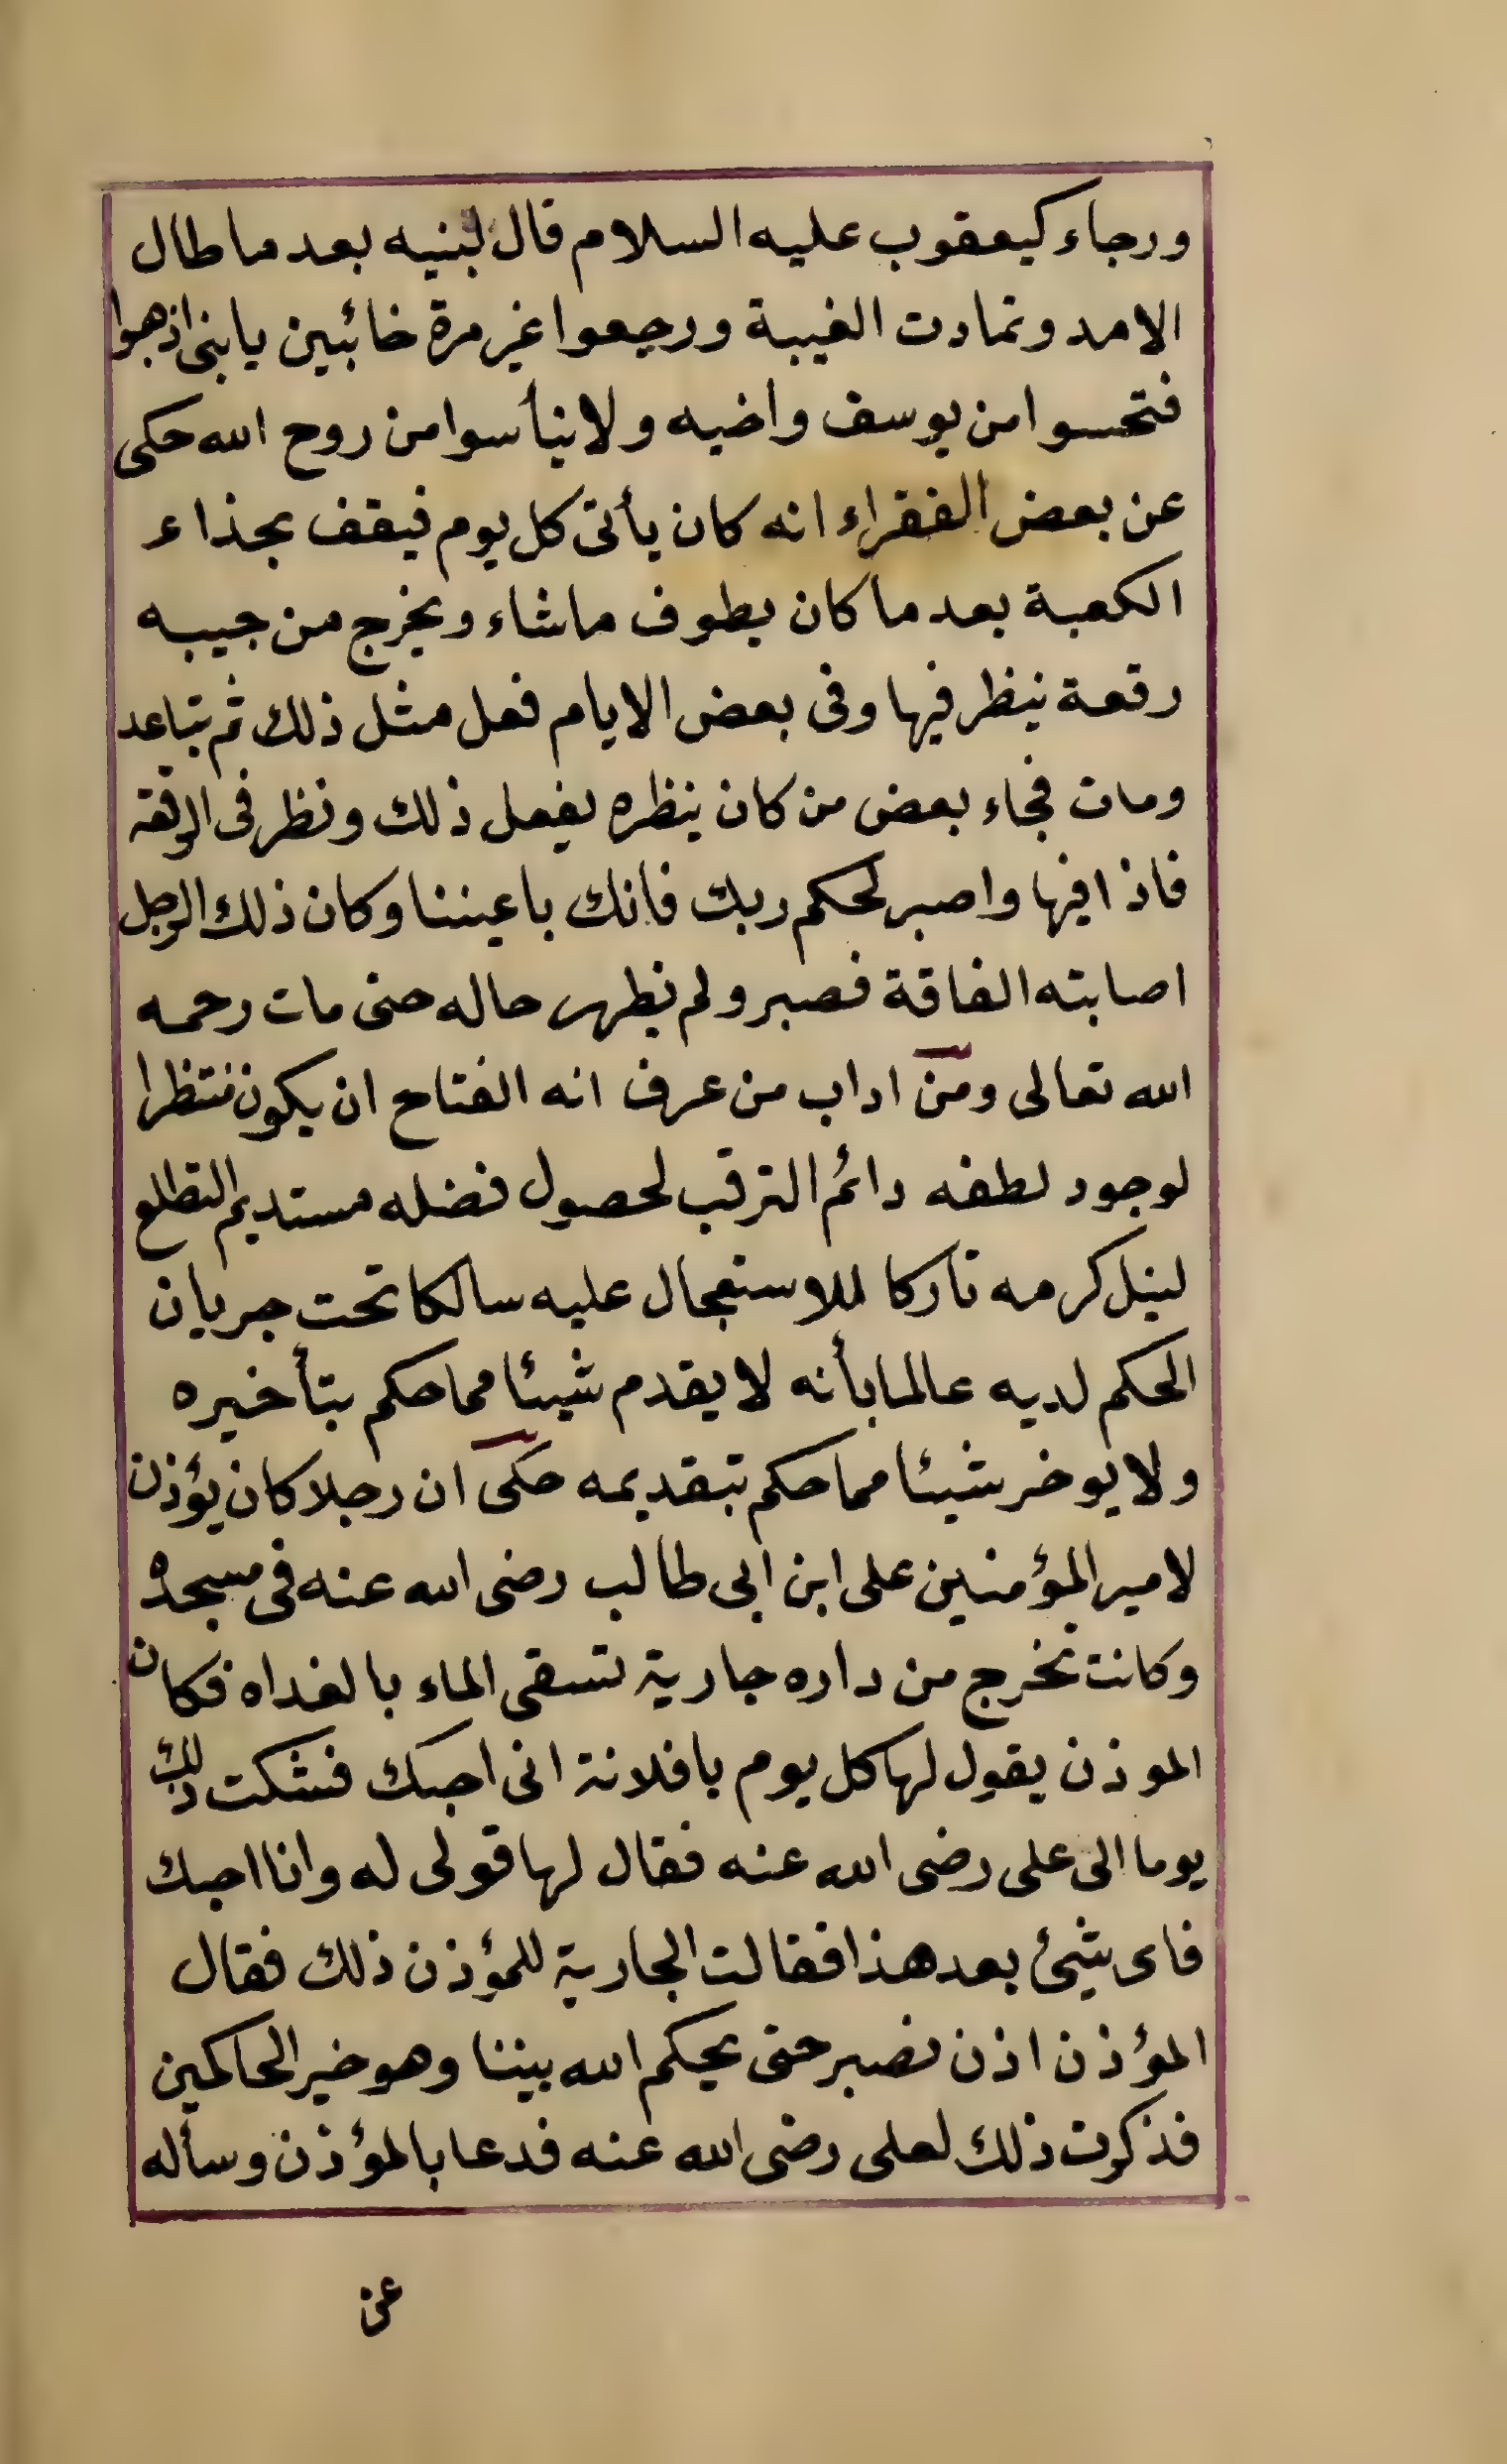 ورجاء كيعقوب عليه السلام قال لبنيه بعد ما طال
الامد وتمادت الغيبة ورجعوا غير مرة خائبين يا بنى اذهبوا
فتحسوا من يوسف واخيه ولا تيأسوا من روح الله حكى
عن بعض الفقراء انه كان يأتى كل يوم فيقف بحذاء
الكعبة بعد ما كان يطوف ما شاء ويخرج من جيبه
رقعة ينظر فيها وفى بعض الايام فعل مثل ذلك ثم تباعد
ومات فجاء بعض من كان ينظره يفعل ذلك ونظر فى الرقعة
فاذا فيها واصبر لحكم ربك فانك باعيننا وكان ذلك الرجل
اصابته الفاقة فصبر ولم يظهر حاله حتى مات رحمه
الله تعالى ومن اداب من عرف انه الفتاح ان يكون منتظرا
لوجود لطفه دائم الترقب لحصول فضله مستديم التطلع
لنيل كرمه تاركا للاستعجال عليه ساكنا تحت جريان
الحكم لديه عالما بأنه لا يقدم شيئا مما حكم بتأخيره
ولا يوخر شيئا مما حكم بتقديمه حكى ان رجلا كان يؤذن
لامير المؤمنين على ابن ابى طالب رضى الله عنه فى مسجده
وكانت تخرج من داره جارية تسقى الماء بالغداه فكان
الموذن يقول لها كل يوم يا فلانة انى احبك فشكت ذلك
يوما الى على رضى الله عنه فقال لها قولى له وانا احبك
فاى شيئ بعد هذا فقالت الجارية للمؤذن ذلك فقال
المؤذن اذن نصبر حتى يحكم الله بيننا وهو خير الحاكمين
فذكرت ذلك لعلى رضى الله عنه فدعا بالمؤذن وسأله
عن